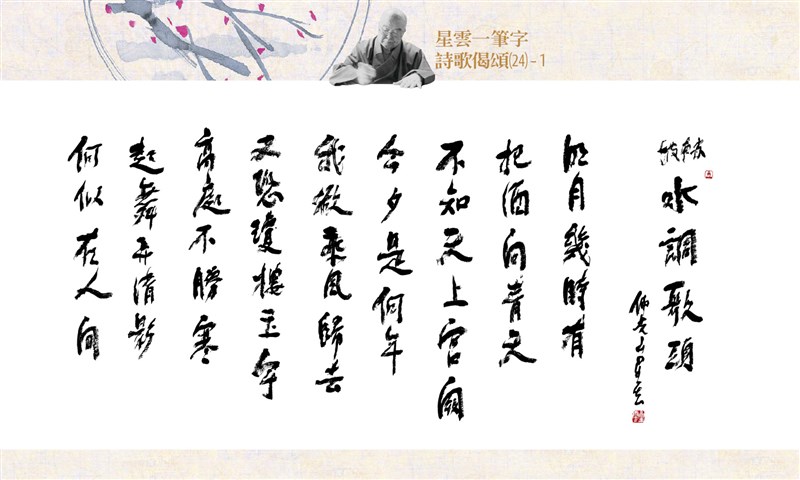 星雲一筆字
詩歌偈頌(24)-1
蘇軾
水調歌頭
佛光山星雲
明月幾時有
把酒向青天
不知天上宮闕
今夕是何年
我欲乘風歸去
又恐瓊樓玉宇
高處不勝寒
起舞弄清影
何似在人間